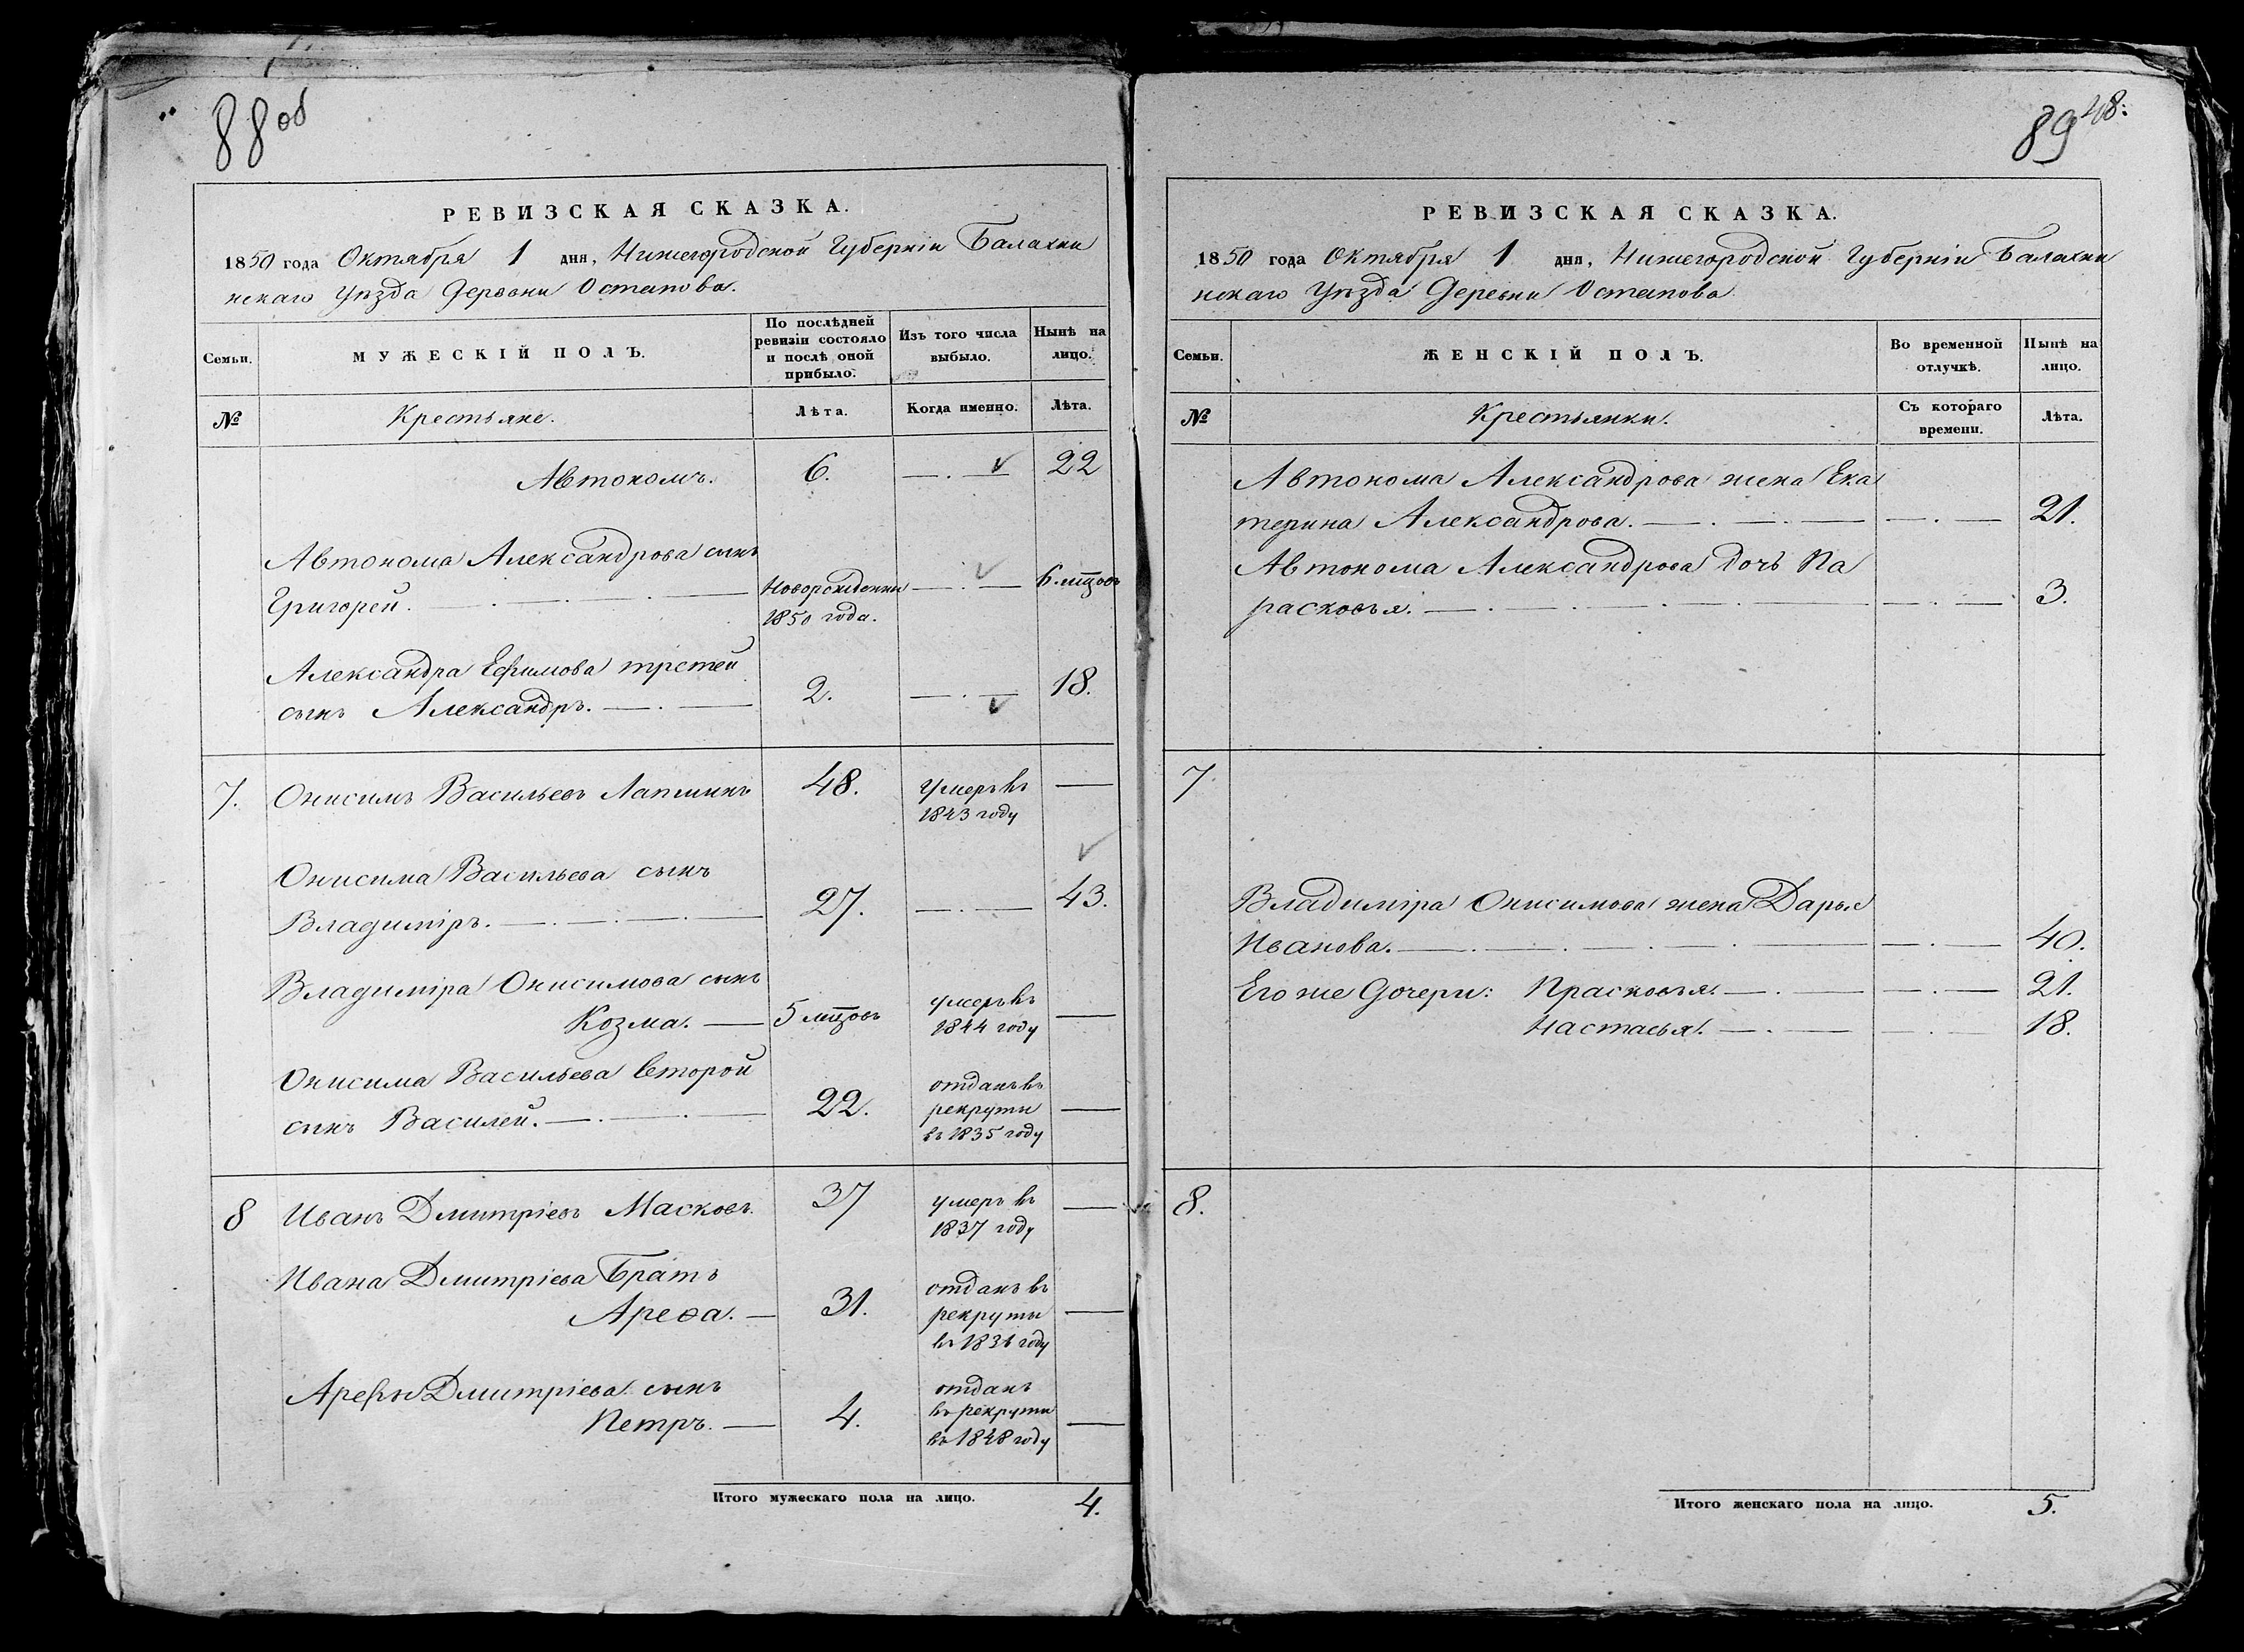 88об
РЕВИЗСКАЯ СКАЗКА.
1850 года Октября 1 дня, Нижегородской Губерніи Балахни
нскаго Уѣзда Деревни Остапова.
Семьи.
МУЖЕСКІЙ ПОЛЪ.
По послѣдней ревизіи состояло и послѣ оной прибыло.
Изъ того числа выбыло.
Нынѣ на лицо.
№
Крестьяне.
Лѣта.
Когда именно.
Лѣта.
Автономъ. 6. — . — 22
Автонома Александрова сынъ
Григорей. Новорожденны 1850 года. — . — 6 мцовъ
Александра Ефимова третей
сынъ Александръ. 2. — . — 18.
7. Онисимъ Васильевъ Лапшинъ 48. Умеръ въ 1843 году —
Онисима Васильева сынъ
Владиміръ. 27. — . — 43.
Владиміра Онисимова сынъ
Козма. — 5 мцовъ умеръ въ 1844 году —
Онисима Васильева второй
сынъ Василей. 22. отданъ въ рекруты въ 1835 году —
8 Иванъ Дмитріевъ Масковъ. 37 умеръ въ 1837 году —
Ивана Дмитріева Братъ
Ареѳа. — 31. отданъ въ рекруты въ году —
Арефы Дмитріева сынъ
Петръ. — 4. отданъ въ рекруты въ 1848 году —
Итого мужескаго пола на лицо. 4.
89 48.
РЕВИЗСКАЯ СКАЗКА.
1850 года Октября 1 дня, Нижегородской Губерніи Балахни
нскаго Уѣзда Деревни Остапова
Семьи.
ЖЕНСКІЙ ПОЛЪ.
Во временной отлучкѣ.
Нынѣ на лицо.
№
Крестьянки.
Съ котораго времени.
Лѣта.
Автонома Александрова жена Ека
терина Александрова. — . — 21.
Автонома Александрова дочь Па
расковья. — . — 3.
7.
Владиміра Онисимова жена Дарья
Иванова. — . — 40.
Его же Дочери: Прасковья. — . — 21.
Настасья. — . — 18.
8.
Итого женскаго пола на лицо. 5.